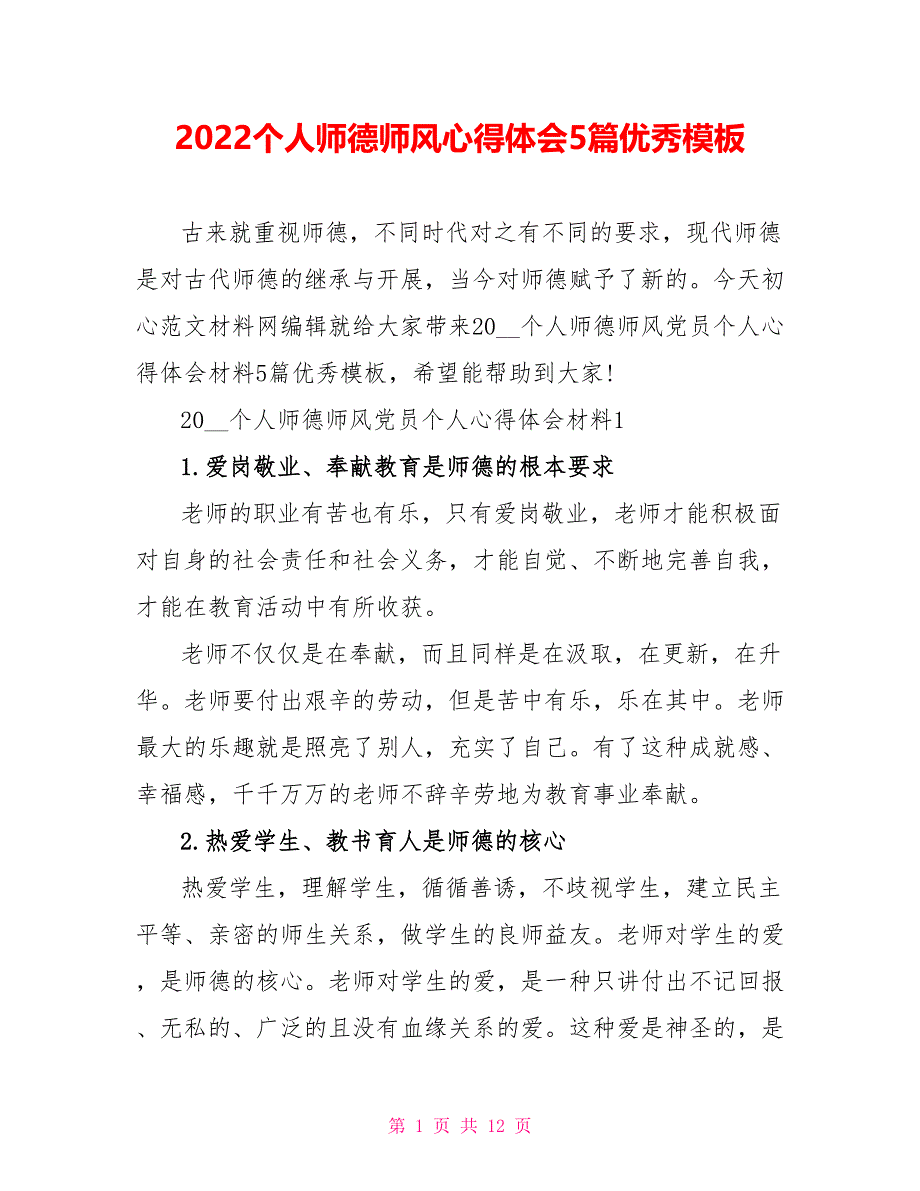 2022个人师德师风心得体会5篇优秀模板
古来就重视师德，不同时代对之有不同的要求，现代师德
是对古代师德的继承与开展，当今对师德赋予了新的。今天初
心范文材料网编辑就给大家带来20__个人师德师风党员个人心
得体会材料5篇优秀模板，希望能帮助到大家!
20__个人师德师风党员个人心得体会材料1
1.爱岗敬业、奉献教育是师德的根本要求
老师的职业有苦也有乐，只有爱岗敬业，老师才能积极面
对自身的社会责任和社会义务，才能自觉、不断地完善自我，
才能在教育活动中有所收获。
老师不仅仅是在奉献，而且同样是在汲取，在更新，在升
华。老师要付出艰辛的劳动，但是苦中有乐，乐在其中。老师
最大的乐趣就是照亮了别人，充实了自己。有了这种成就感、
幸福感，千千万万的老师不辞辛劳地为教育事业奉献。
2.热爱学生、教书育人是师德的核心
热爱学生，理解学生，循循善诱，不歧视学生，建立民主
平等、亲密的师生关系，做学生的良师益友。老师对学生的爱
，是师德的核心。老师对学生的爱，是一种只讲付出不记回报
、无私的、广泛的且没有血缘关系的爱。这种爱是神圣的，是
第 1 页 共 12 页